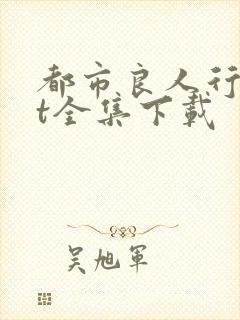 都市良人行
t全集下载
吴旭军